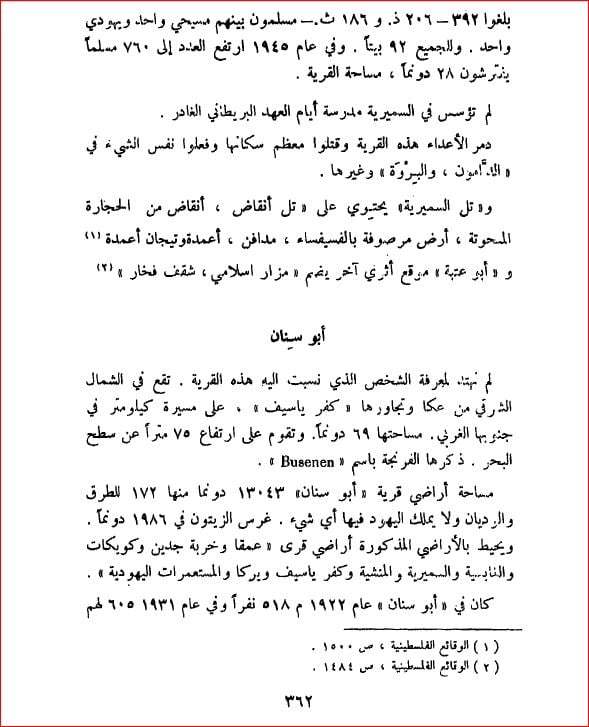 بلغوا ٣٩٢ – ٢٠٦ ذ. و ١٨٦ ث. – مسلمون بينهم مسيحي واحد ويهودي
واحد . وللجميع ٩٢ بيتاً . وفي عام ١٩٤٥ ارتفع العدد إلى ٧٦٠ مسلماً
يفترشون ٢٨ دونماً ، مساحة القرية .
لم تؤسس في السميرية مدرسة أيام العهد البريطاني الغادر .
دمر الأعداء هذه القرية وقتلوا معظم سكانها وفعلوا نفس الشيء في
« الدَّامون ، والبِرْوَة » وغيرها .
و« تل السميرية» يحتوي على « تل أنقاض ، أنقاض من الحجارة
المنحوتة ، أرض مرصوفة بالفسيفساء ، مدافن ، أعمدة وتيجان أعمدة (١)
و « أبو عتبة » موقع أثري آخر يضم « مزار اسلامي ، شقف فخار » (٢)
أبو سِنان
لم نهتد لمعرفة الشخص الذي نسبت اليه هذه القرية . تقع في الشمال
الشرقي من عكا وتجاورها « كفر ياسيف » ، على مسيرة كيلومتر في
جنوبها الغربي. مساحتها ٦٩ دونماً. وتقوم على ارتفاع ٧٥ متراً عن سطح
البحر . ذكرها الفرنجة باسم « Busenen » .
مساحة أراضي قرية « أبو سنان» ١٣٠٤٣ دونما منها ١٧٢ للطرق
والوديان ولا يملك اليهود فيها أي شيء . غرس الزيتون في ١٩٨٦ دونماً .
ويحيط بالأراضي المذكورة أراضي قرى « عمقا وخربة جدين وكويكات
والغابسية والسميرية والمنشية وكفر ياسيف ويركا والمستعمرات اليهودية » .
كان في « أبو سنان » عام ١٩٢٢ م ٥١٨ نفراً وفي عام ١٩٣١ ٦٠٥ لهم
( ١ ) الوقائع الفلسطينية ، ص ١٥٠٠ .
( ٢ ) الوقائع الفلسطينية ، ص ١٤٨٤ .
٣٦٢